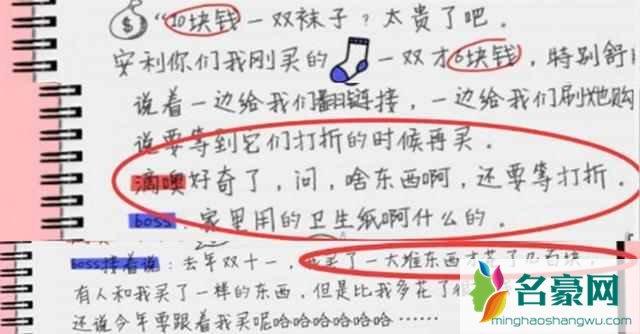 “10块钱一双袜子？太贵了吧。
安利你们我刚买的 一双才6块钱，特别舒
说着一边给我们翻链接，一边给我们刷她购
说要等到它们打折的时候再买．
滴噢好奇了，问，啥东西啊，还要等打折．
boss：家里用的卫生纸啊什么的．
boss接着说：去年双十一，我买了一大堆东西才花了几百块，
有人和我买了一样的东西，但是比我多花了
还说今年要跟着我买呢哈哈哈哈哈哈……
名豪网
mingh